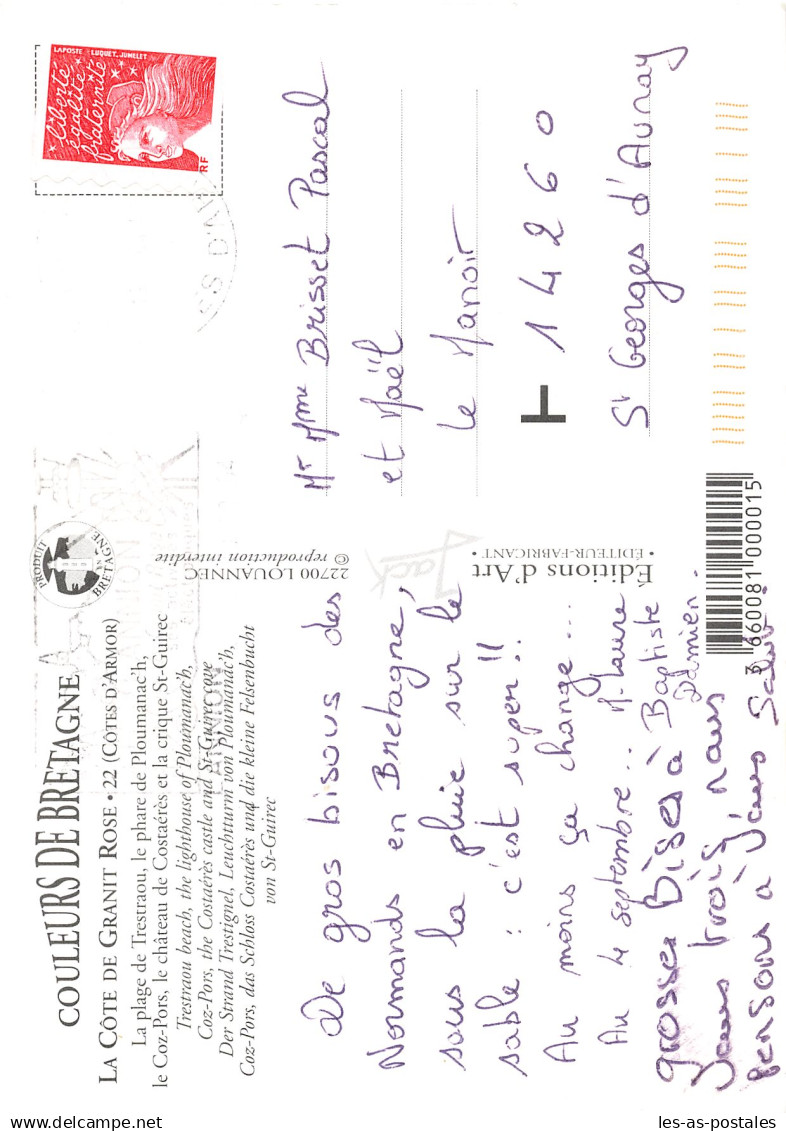 COULEURS DE BRETAGNE
LA CÔTE DE GRANIT ROSE • 22 (CÔTES D'ARMOR)
La plage de Trestraou, le phare de Ploumanac'h,
le Coz-Pors, le château de Costaérès et la crique St-Guirec
Trestraou beach, the lighthouse of Ploumanac'h,
Coz-Pors, the Costaérès castle and St-Guirec cove
Der Strand Trestignel, Leuchtturm von Ploumanac'h,
Coz-Pors, das Schloss Costaérès und die kleine Felsenbucht
von St-Guirec
PRODUIT EN BRETAGNE
LANNION
De gros bisous des
Normands en Bretagne,
sous la pluie sur le
sable : c'est super !!
Au moins ça change...
Au 4 septembre.. M. Laure
grosses Bises à Baptiste
Damien.
tous trois, nous
pensons à
22700 LOUANNEC
© reproduction interdite
Jack
Editions d'Art
• ÉDITEUR-FABRICANT •
3 660081 000015
LAPOSTE LUQUET. JUMELET
liberté
égalité
fraternité
RF
Mr Mme Brisset Pascal
et Maël
le Manoir
14260
St Georges d'Aunay
les-as-postales